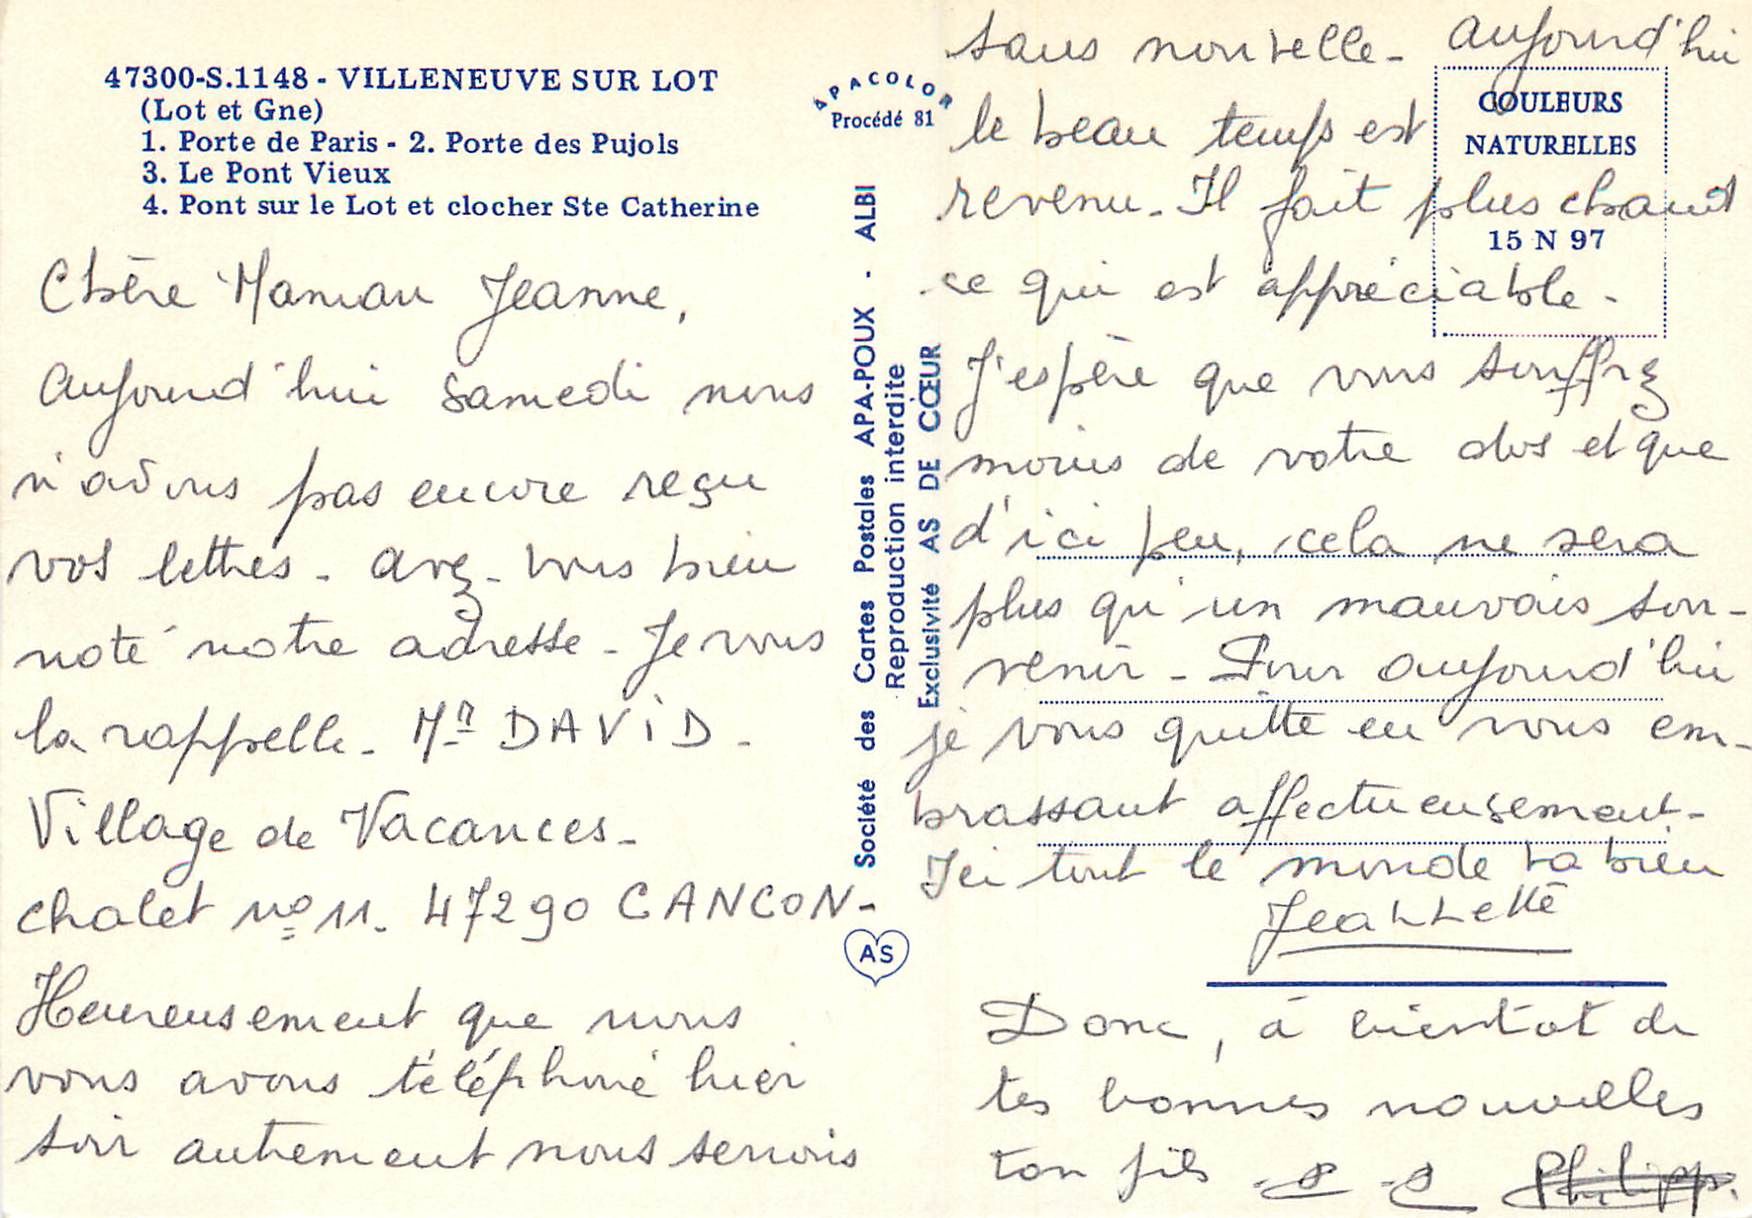 47300-S.1148 - VILLENEUVE SUR LOT
(Lot et Gne)
1. Porte de Paris - 2. Porte des Pujols
3. Le Pont Vieux
4. Pont sur le Lot et clocher Ste Catherine
Chère Maman Jeanne,
Aujourd'hui samedi nous
n'avons pas encore reçu
vos lettres - avez-vous bien
noté notre adresse - Je vous
la rappelle - Mr DAVID -
Village de Vacances -
chalet no 11. 47290 CANCON -
Heureusement que nous
vous avons téléphoné hier
soir autrement nous serions
APACOLOR
Procédé 81
Société des Cartes Postales APA-POUX - ALBI
Reproduction interdite
Exclusivité AS DE CŒUR
AS
COULEURS
NATURELLES
15 N 97
sans nouvelle - Aujourd'hui
le beau temps est
revenu - Il fait plus chaud
ce qui est appréciable -
J'espère que vous souffrez
moins de votre dos et que
d'ici peu, cela ne sera
plus qu'un mauvais sou-
venir - Pour aujourd'hui
je vous quitte en vous em-
brassant affectueusement -
Ici tout le monde va bien
Jeannette
Donc, à bientôt de
tes bonnes nouvelles
ton fils
Philipp.